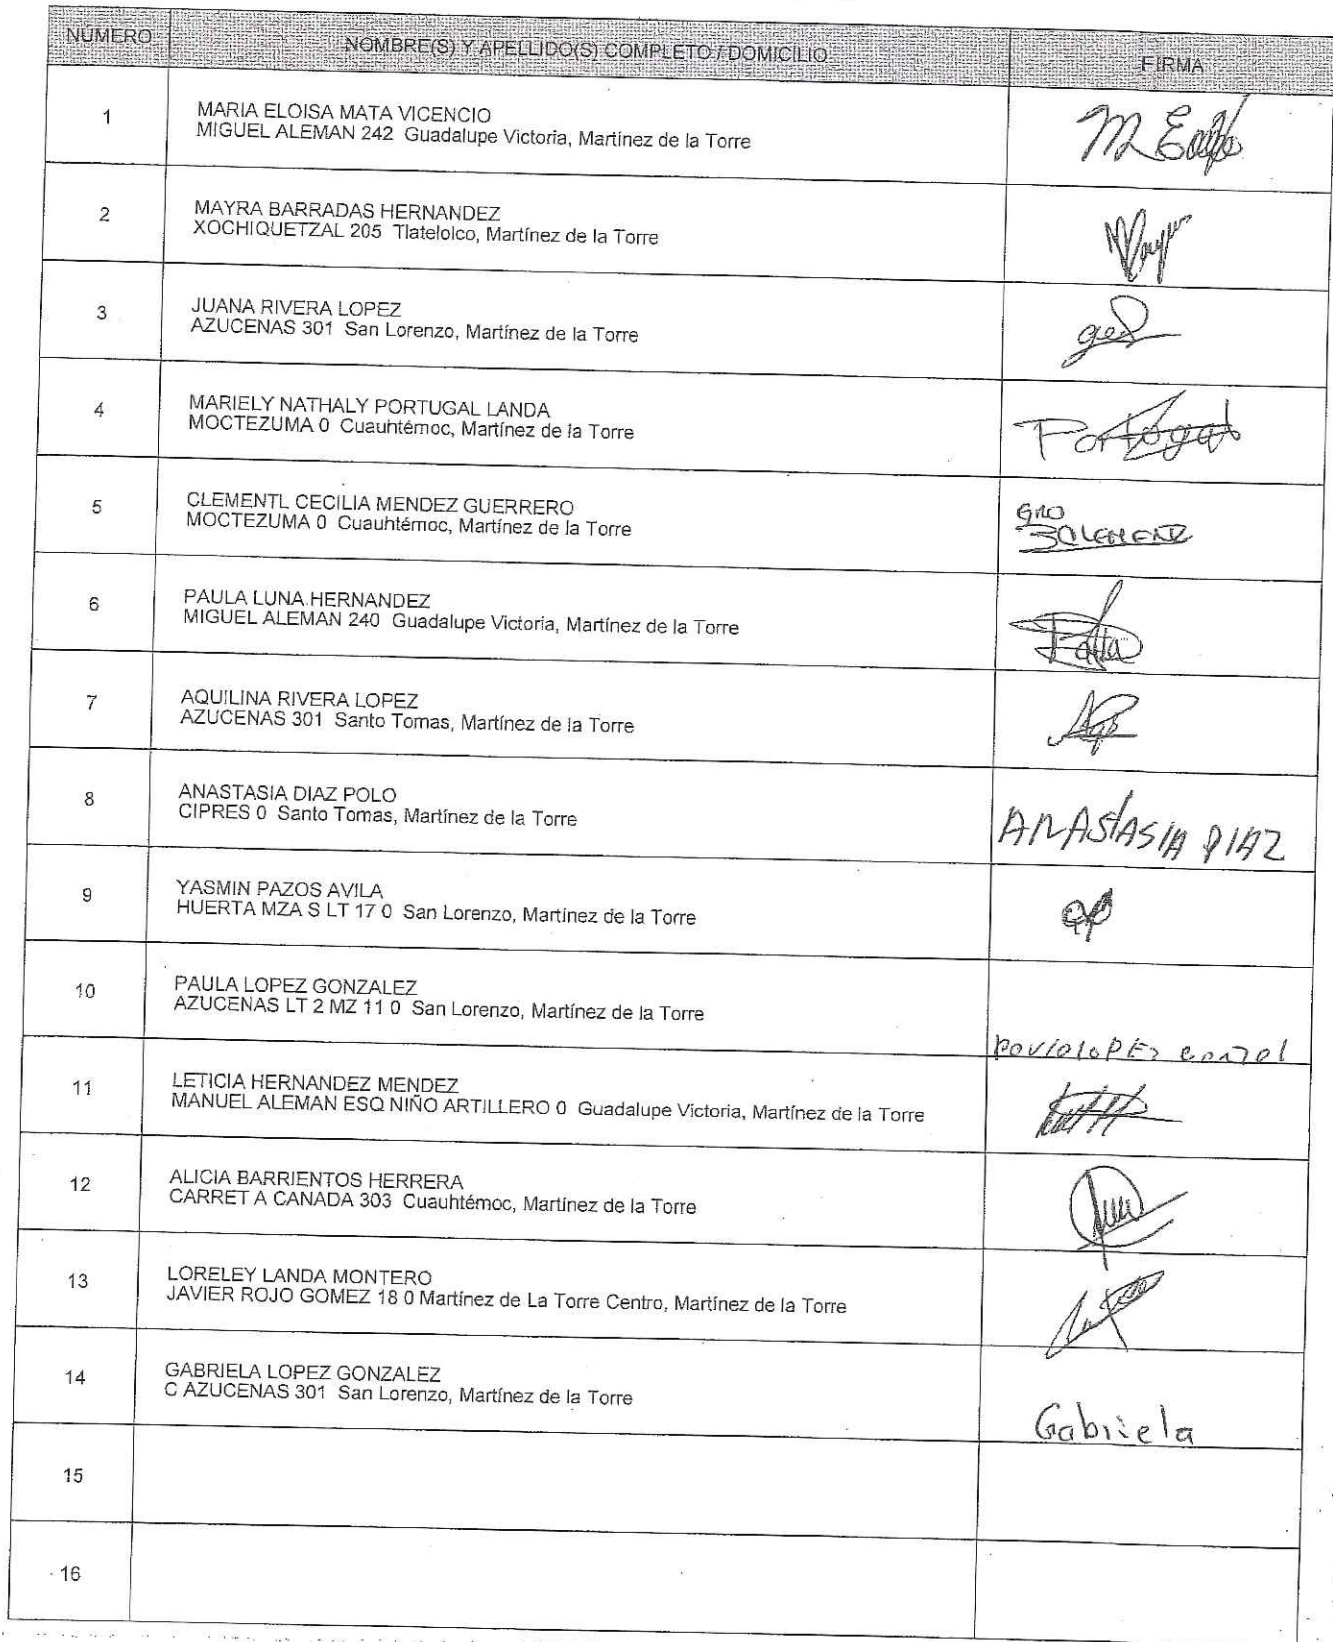 NUMERO NOMBRE(S) Y APELLIDO(S) COMPLETO / DOMICILIO FIRMA
1 MARIA ELOISA MATA VICENCIO
MIGUEL ALEMAN 242 Guadalupe Victoria, Martínez de la Torre
2 MAYRA BARRADAS HERNANDEZ
XOCHIQUETZAL 205 Tlatelolco, Martínez de la Torre
3 JUANA RIVERA LOPEZ
AZUCENAS 301 San Lorenzo, Martínez de la Torre
4 MARIELY NATHALY PORTUGAL LANDA
MOCTEZUMA 0 Cuauhtémoc, Martínez de la Torre
Portugal
5 CLEMENTL CECILIA MENDEZ GUERRERO
MOCTEZUMA 0 Cuauhtémoc, Martínez de la Torre
GRO
6 PAULA LUNA HERNANDEZ
MIGUEL ALEMAN 240 Guadalupe Victoria, Martínez de la Torre
7 AQUILINA RIVERA LOPEZ
AZUCENAS 301 Santo Tomas, Martínez de la Torre
8 ANASTASIA DIAZ POLO
CIPRES 0 Santo Tomas, Martínez de la Torre
ANASTASIA DIAZ
9 YASMIN PAZOS AVILA
HUERTA MZA S LT 17 0 San Lorenzo, Martínez de la Torre
10 PAULA LOPEZ GONZALEZ
AZUCENAS LT 2 MZ 11 0 San Lorenzo, Martínez de la Torre
11 LETICIA HERNANDEZ MENDEZ
MANUEL ALEMAN ESQ NIÑO ARTILLERO 0 Guadalupe Victoria, Martínez de la Torre
12 ALICIA BARRIENTOS HERRERA
CARRET A CANADA 303 Cuauhtémoc, Martínez de la Torre
13 LORELEY LANDA MONTERO
JAVIER ROJO GOMEZ 18 0 Martínez de La Torre Centro, Martínez de la Torre
14 GABRIELA LOPEZ GONZALEZ
C AZUCENAS 301 San Lorenzo, Martínez de la Torre
Gabriela
15
16